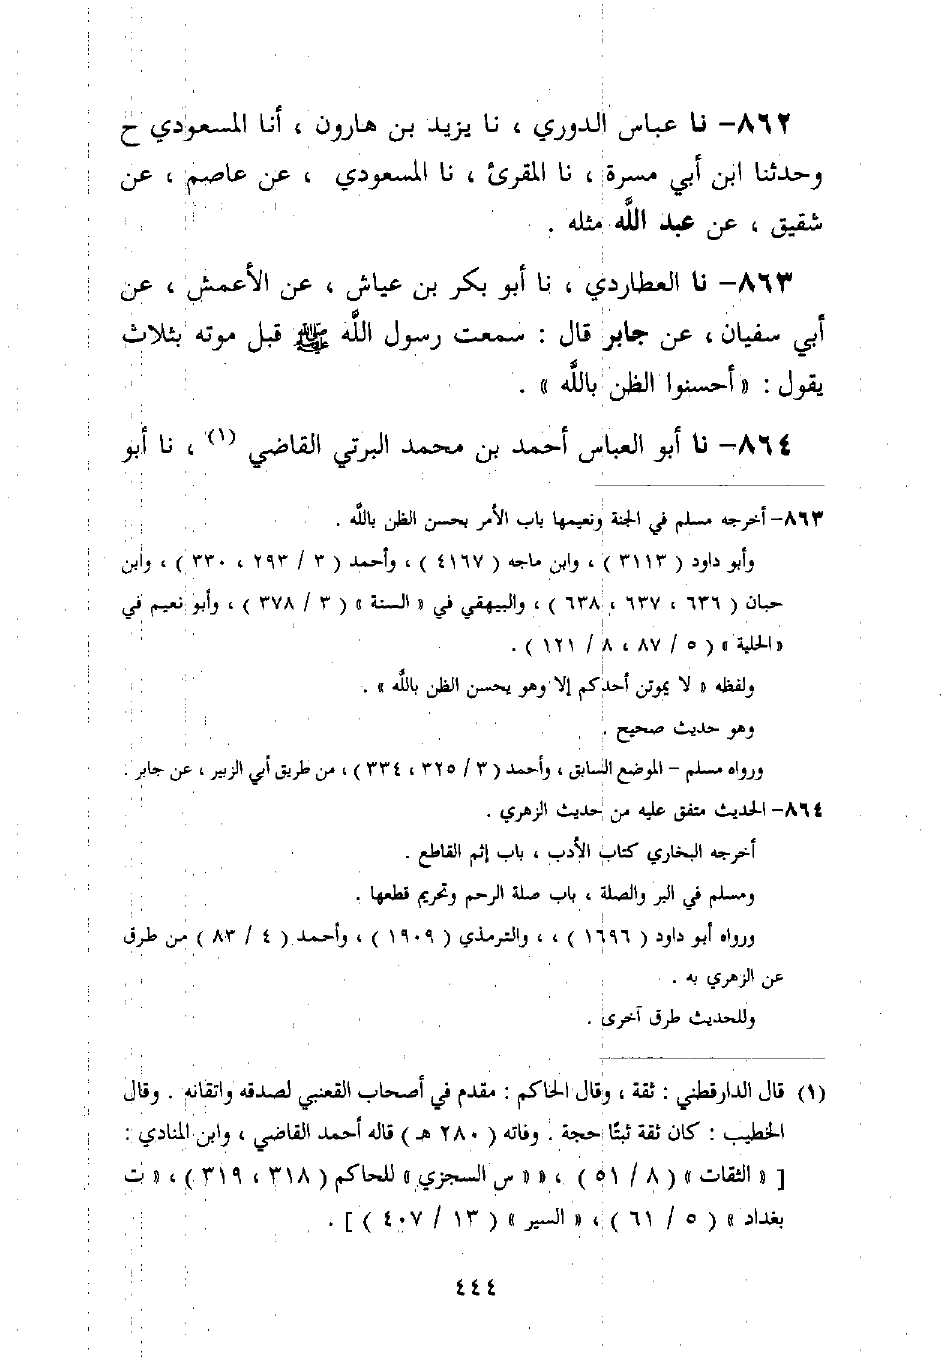 ٨٦٢– نا عباس الدوري ، نا يزيد بن هارون ، أنا المسعودي ح
وحدثنا ابن أبي مسرة ، نا المقرئ ، نا المسعودي ، عن عاصم ، عن
شقيق ، عن عبد اللَّه مثله .
٨٦٣– نا العطاردي ، نا أبو بكر بن عياش ، عن الأعمش ، عن
أبي سفيان ، عن جابر قال : سمعت رسول اللَّه ﷺ قبل موته بثلاث
يقول : « أحسنوا الظن باللَّه » .
٨٦٤– نا أبو العباس أحمد بن محمد البرتي القاضي (١) ، نا أبو
٨٦٣– أخرجه مسلم في الجنة ونعيمها باب الأمر بحسن الظن باللَّه .
وأبو داود ( ٣١١٣ ) ، وابن ماجه ( ٤١٦٧ ) ، وأحمد ( ٣ / ٢٩٣ ، ٣٣٠ ) ، وابن
حبان ( ٦٣٦ ، ٦٣٧ ، ٦٣٨ ) ، والبيهقي في « السنة » ( ٣ / ٣٧٨ ) ، وأبو نعيم في
« الحلية » ( ٥ / ٨٧ ، ٨ / ١٢١ ) .
ولفظه « لا يموتن أحدكم إلا وهو يحسن الظن باللَّه » .
وهو حديث صحيح .
ورواه مسلم – الموضع السابق ، وأحمد ( ٣ / ٣٢٥ ، ٣٣٤ ) ، من طريق أبي الزبير ، عن جابر .
٨٦٤– الحديث متفق عليه من حديث الزهري .
أخرجه البخاري كتاب الأدب ، باب إثم القاطع .
ومسلم في البر والصلة ، باب صلة الرحم وتحريم قطعها .
ورواه أبو داود ( ١٦٩٦ ) ، ، والترمذي ( ١٩٠٩ ) ، وأحمد ( ٤ / ٨٣ ) من طرق
عن الزهري به .
وللحديث طرق آخرى .
(١) قال الدارقطني : ثقة ، وقال الحاكم : مقدم في أصحاب القعنبي لصدقه واتقانه . وقال
الخطيب : كان ثقة ثبتًا حجة . وفاته ( ٢٨٠ هـ ) قاله أحمد القاضي ، وابن المنادي :
[ « الثقات » ( ٨ / ٥١ ) ، « « س السجزي » للحاكم ( ٣١٨ ، ٣١٩ ) ، « ت
بغداد » ( ٥ / ٦١ ) ، « السير » ( ١٣ / ٤٠٧ ) ] .
٤٤٤